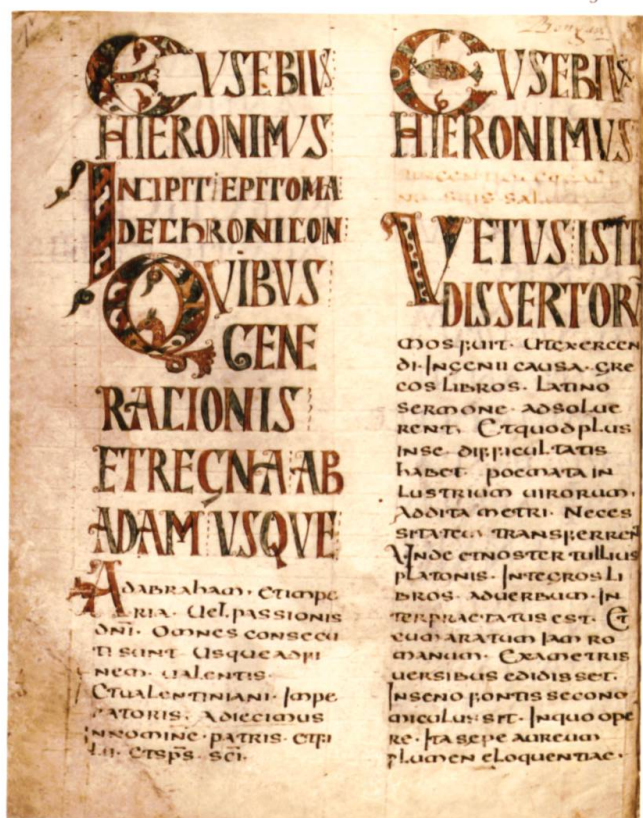 EVSEBIVS
HIERONIMVS
INCIPIT EPITOMA
DE CHRONICON
QVIBVS
GENE
RACIONIS
ET REGNA AB
ADAM VSQVE
Ad abraham · Et impe
ria · Vel passionis
dni · Omnes consecu
ti sunt · Usque ad fi
nem · ualentis ·
Et ualentiniani · Impe
ratoris · Adiecimus
In nomine · patris · et fi
lii · et sps · sci ·
EVSEBIVS
HIERONIMVS
VETVS ISTE
DISSERTOR
mos fuit · Ut exercen
di · Ingenii causa · gre
cos libros · Latino
sermone · absolue
rent · Et quod plus
in se · difficultatis
habet · poemata in
lustrium uirorum ·
Addita metri · Neces
sitate · transferren
Unde et noster tullius
platonis · Integros li
bros · ad uerbum · In
terpraetatus est · Et
cum aratum iam ro
manum · Exametris
uersibus edidisset ·
In opere
re · Ita sepe aureum
flumen eloquentiae ·